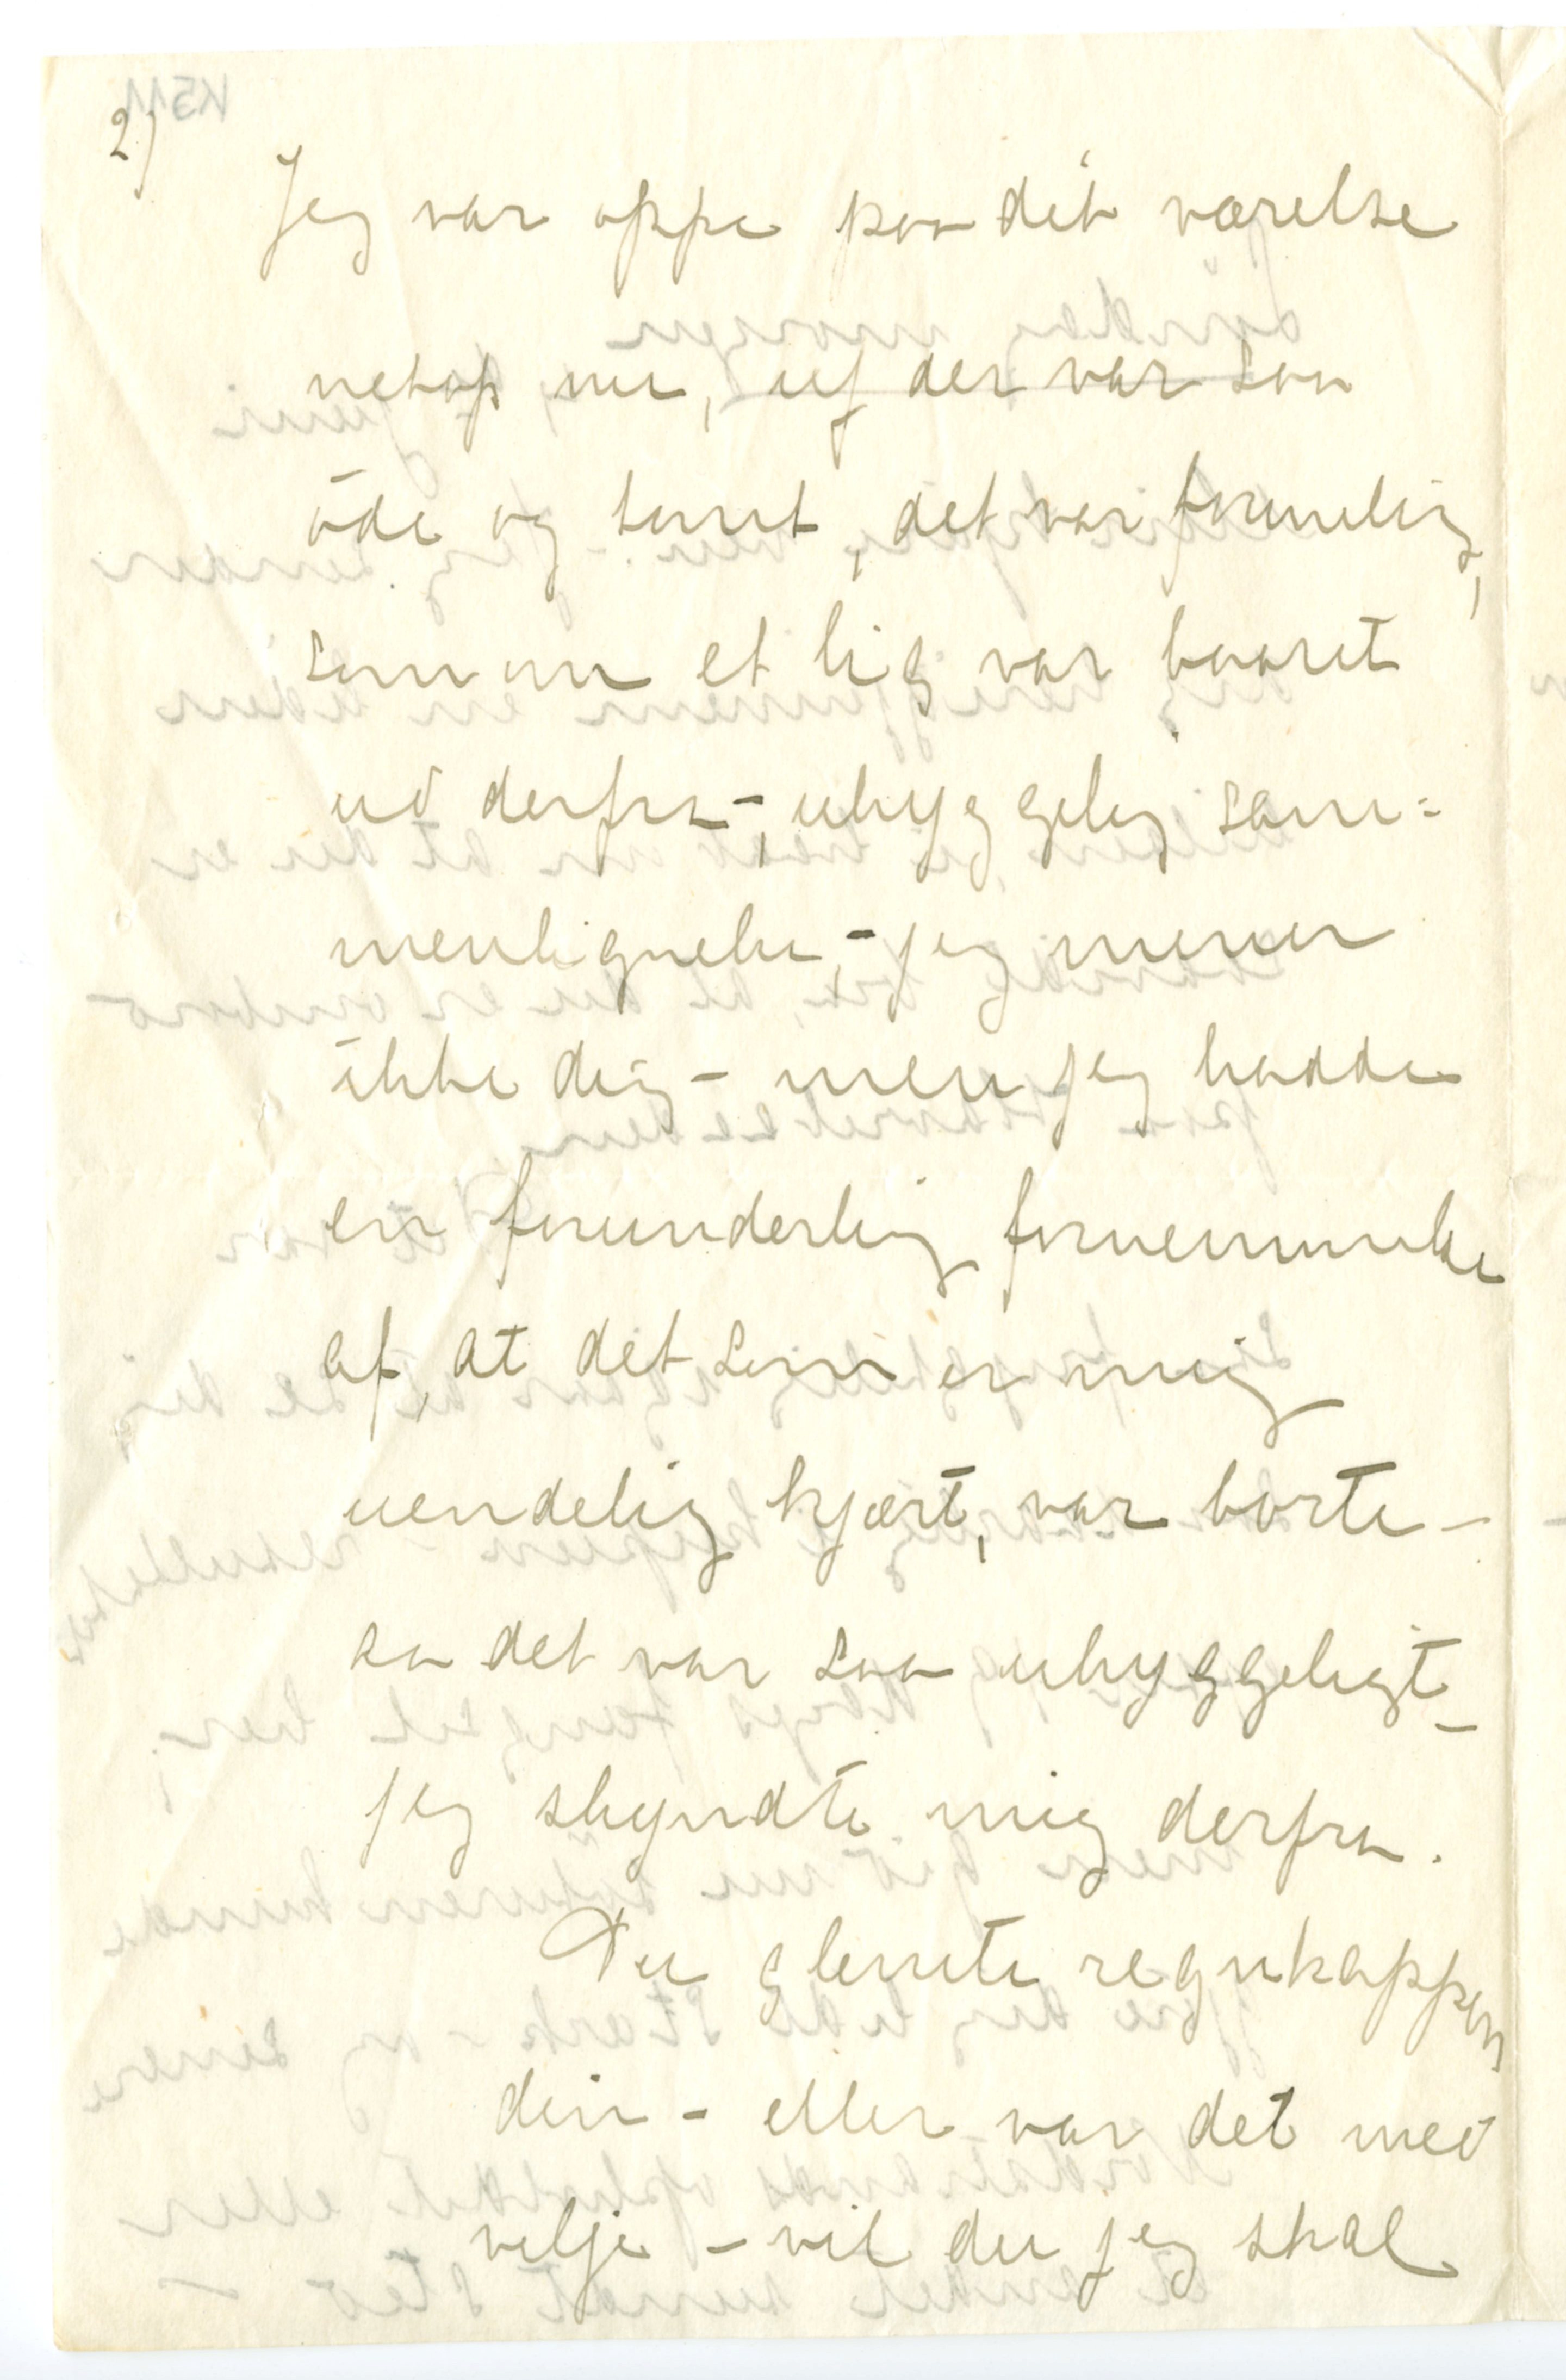 2)
Jeg var oppe paa dit værelse
netop nu, uf der var saa
öde og tomt, det var formelig,
som om et lig var baaret
ud derfra -, uhyggelig sam=
menlignelse, - jeg mener
ikke dig - men jeg hadde
en forunderlig fornemmelse
af, at det som er mig
uendelig kjært, var borte -
aa det var saa uhyggeligt -
jeg skyndte mig derfra.
Du glemte regnkappen
din - eller var det med
vilje - vil du jeg skal